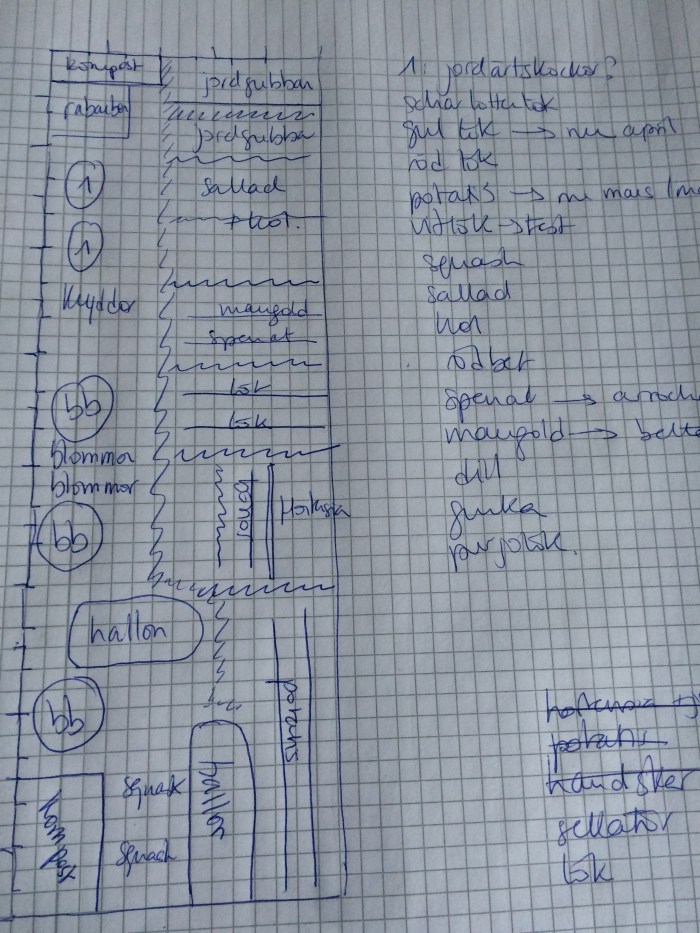 kompost
jordgubbar
rabarber
jordgubbar
1
sallad
+ kol.
1
kryddor
mangold
spenat
bb
lök
lök
blommor
blommor
bönor
bb
hallon
bb
potatis
hallon
squash
squash
kompost
1: jordärtskockor?
scharlottenlök
gul lök → nu april
röd lök
potatis → nu mars
vitlök → test
squash
sallad
kol
rödbet
spenat →
mangold →
dill
gurka
purjolök.
potatis
handsker
sellator
lök